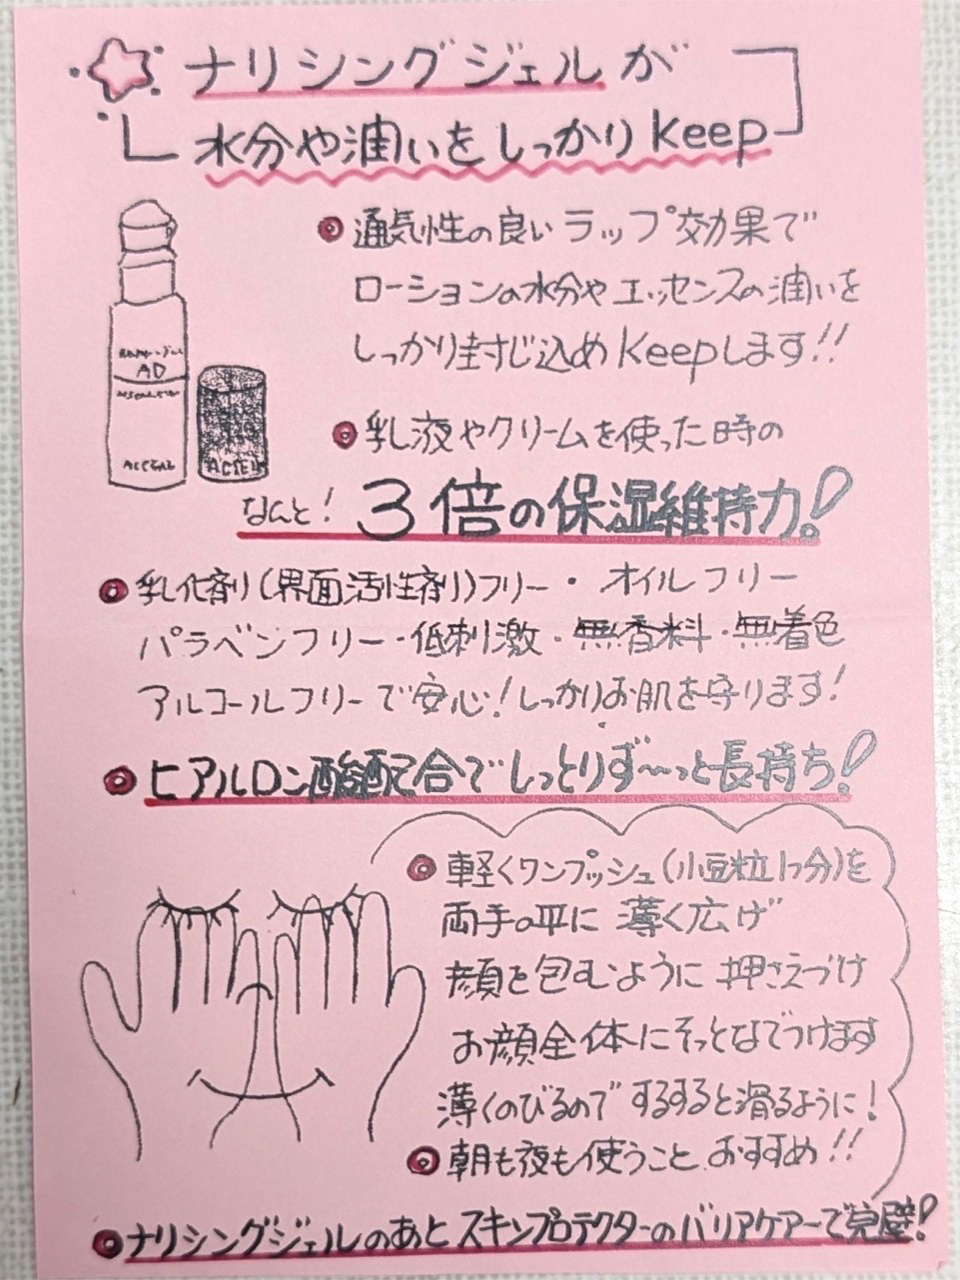 ナリシングジェルが
水分や潤いをしっかりKeep
通気性の良いラップ効果で
ローションの水分やエッセンスの潤いを
しっかり封じ込めKeepします!!
AD
乳液やクリームを使った時の
なんと! 3倍の保湿維持力!
乳化剤(界面活性剤)フリー・オイルフリー
パラベンフリー・低刺激・無香料・無着色
アルコールフリーで安心!しっかりお肌を守ります!
ヒアルロン酸配合でしっとりず〜っと長持ち!
軽くワンプッシュ(小豆粒1つ分)を
両手の平に薄く広げ
顔を包むように押さえづけ
お顔全体にそっとなでつけます
薄くのびるのでするすると滑るように!
朝も夜も使うことおすすめ!!
ナリシングジェルのあとスキンプロテクターのバリアケアーで完璧!